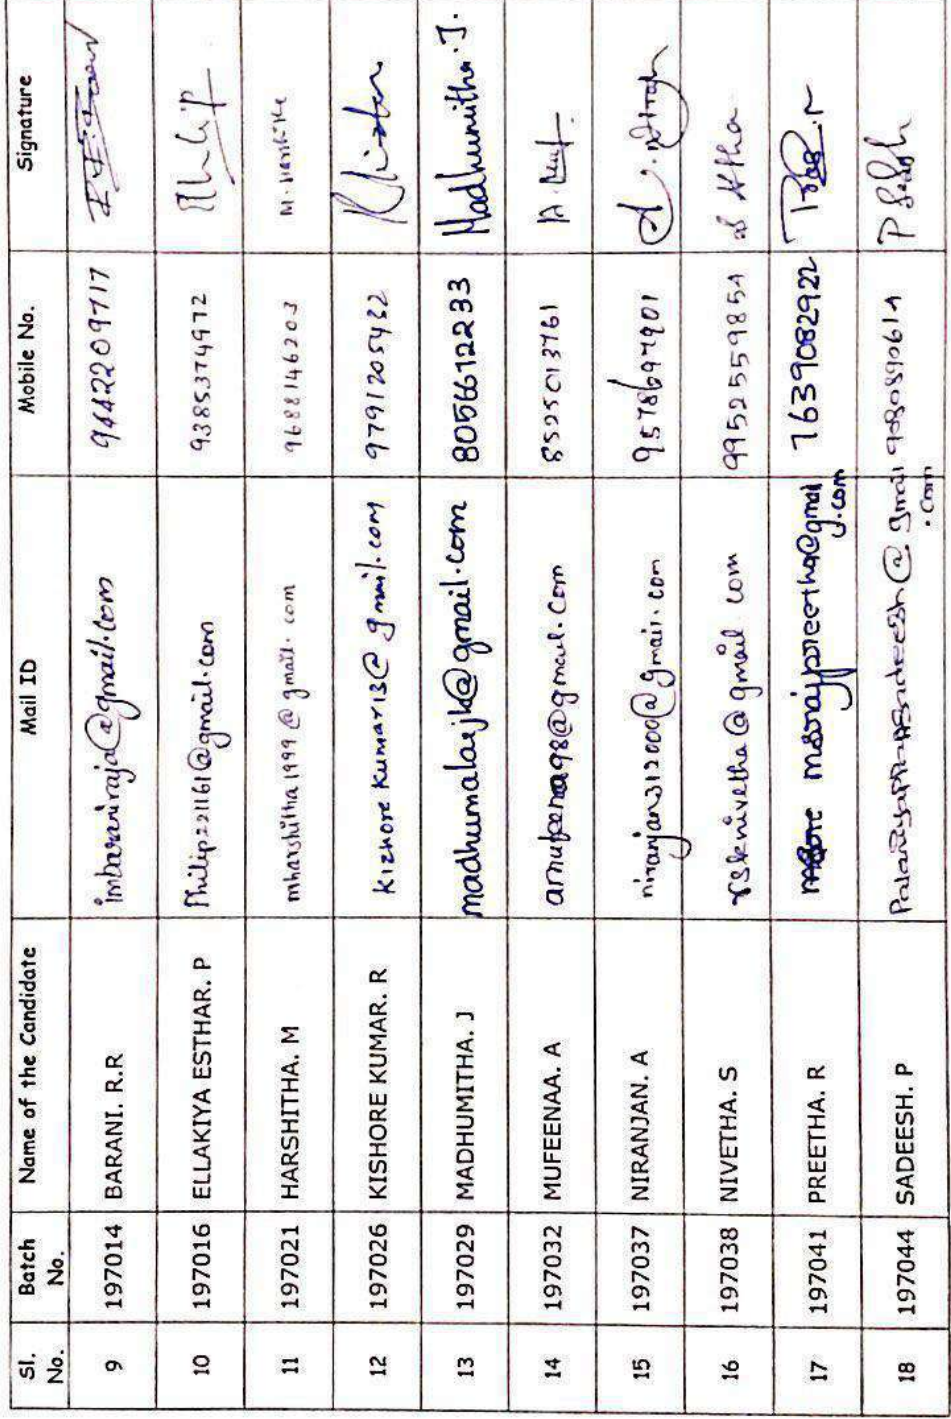 Sl. No. Batch No. Name of the Candidate Mail ID Mobile No. Signature
9 197014 BARANI. R.R imbaraniraja@gmail.com 9442209717
10 197016 ELLAKIYA ESTHAR. P Philip221161@gmail.com 9385374972 Philip
11 197021 HARSHITHA. M mharshitha1999@gmail.com 9688146203 M. Harshitha
12 197026 KISHORE KUMAR. R kizhorekumar13@gmail.com 9791205432
13 197029 MADHUMITHA. J madhumalarjk@gmail.com 8056612233 Madhumitha. J.
14 197032 MUFEENAA. A amufeena98@gmail.com 8525013761
15 197037 NIRANJAN. A niranjan312000@gmail.com 9578697901
16 197038 NIVETHA. S rsknivetha@gmail com 9952559854
17 197041 PREETHA. R msrajpreetha@gmail.com 7639082922
18 197044 SADEESH. P 9080890614